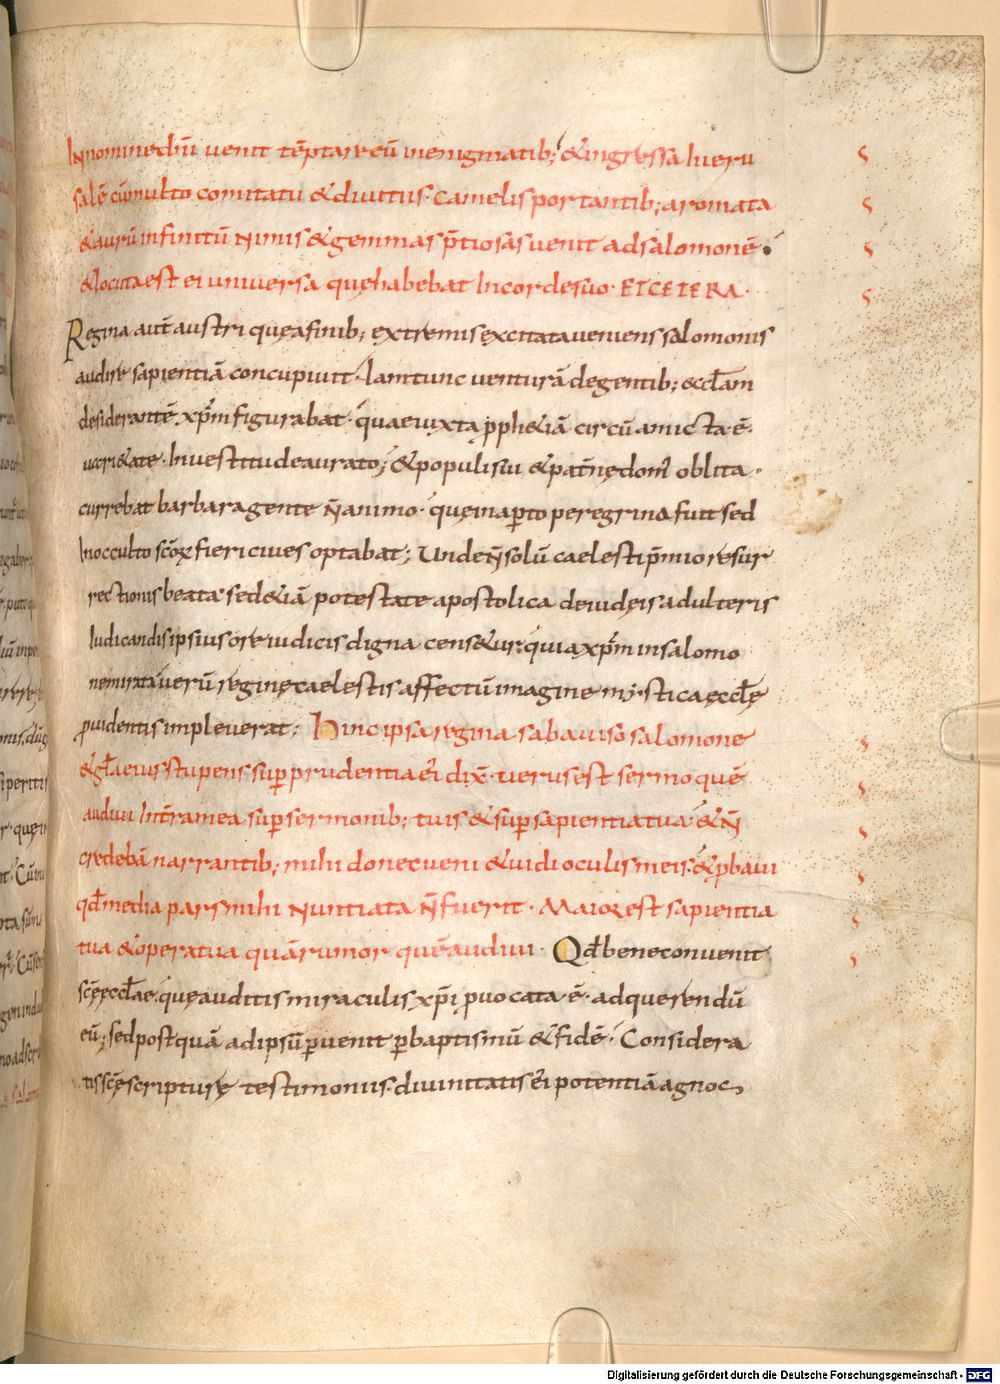 In nomine dn̄i venit tēptare eū in enigmatib; & ingressa hieru
salē cū multo comitatu & divitiis. Camelis portantib; aromata
& aurū infinitū nimis & gemmas p̄tiosas venit ad salomonē.
& locuta est ei universa quę habebat In corde suo. ET CETERA.
Regina aut̄ austri quę a finib; extremis excitata veniens salomonis
audire sapientiā concupivit. Iam tunc venturā de gentib; eccl̄am
desiderantē xp̄m figurabat. quae iuxta pph&iā circū amicta ē.
varietate. In vestitu deaurato; & populi sui & pat̄nę dom' oblita.
currebat barbara gente n̄ animo. quę in apto peregrina fuit sed
In occulto sc̄oꝝ fieri cives optabat; Unde n̄ solū caelesti p̄mio resur
rectionis beata. sed &iā potestate apostolica de iudęis adulteris
Iudicandis ipsius ore iudicis digna cens&ur. quia xp̄m in salomo
ne mirata verū reginę caelestis affectū imagine mystica ęccl̄ę
pvidentis impleverat; Hinc ipsa regina saba viso salomone
& gl̄a eius stupens sup prudentia ei dix̄. verus est sermo quē
audivi In t̄ra mea sup sermonib; tuis & sup sapientia tua. & n̄
credebā narrantib; mihi donec veni & vidi oculis meis. & pbavi
qd̄ media pars mihi nuntiata n̄ fuerit. Maior est sapientia
tua & opera tua quā rumor quē audivi. Qd̄ bene convenit
sc̄ę eccl̄ae. quę auditis miraculis xp̄i pvocata ē. ad querendū
eū; sed postquā ad ipsū pvenit p baptismū & fidē. Considera
tis sc̄ę scripturę testimoniis. divinitatis ei potentiā agnoc
Digitalisierung gefördert durch die Deutsche Forschungsgemeinschaft - DFG